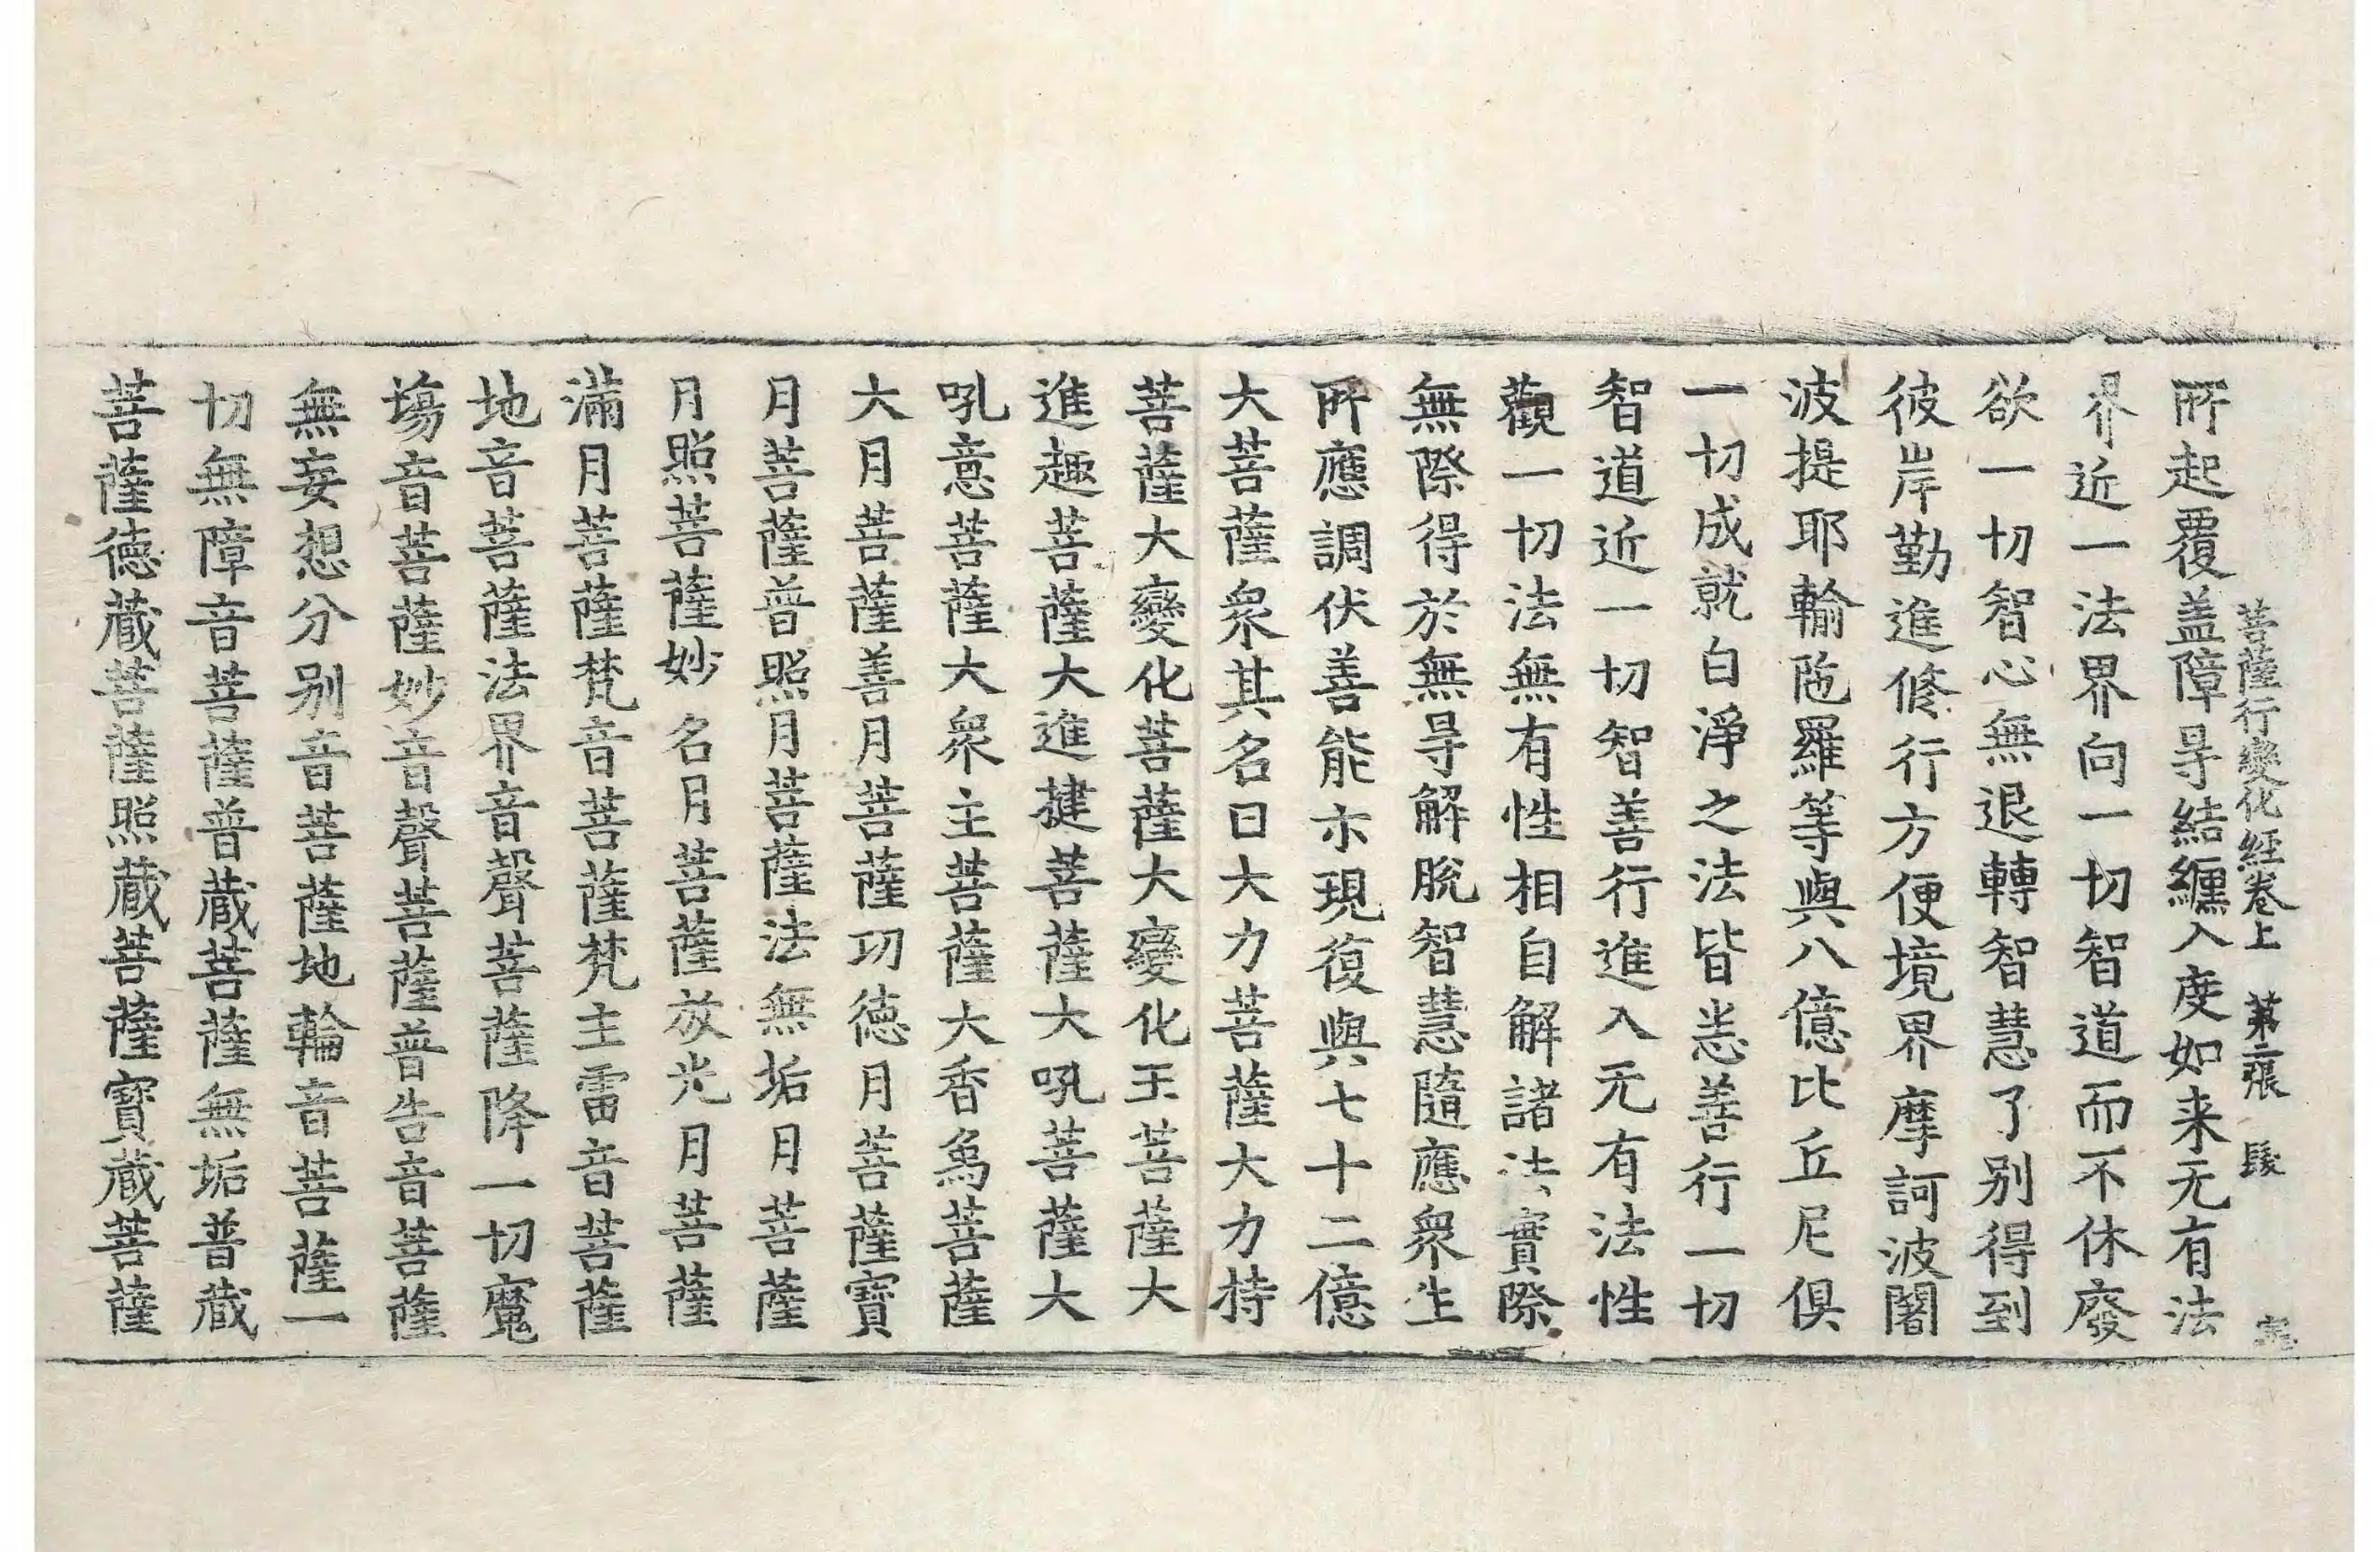 菩薩行變化經卷上 第二張 髮
所起覆盖障㝵結纏入度如来无有法
界近一法界向一切智道而不休廢
欲一切智心無退轉智慧了别得到
彼岸勤進修行方便境界摩訶波闍
波提耶輸陁羅等與八億比丘尼俱
一切成就白淨之法皆悉善行一切
智道近一切智善行進入无有法性
觀一切法無有性相自解諸法實際
無際得於無㝵解脫智慧隨應衆生
所應調伏善能示現復與七十二億
大菩薩衆其名曰大力菩薩大力持
菩薩大變化菩薩大變化王菩薩大
進趣菩薩大進揵菩薩大吼菩薩大
吼意菩薩大衆主菩薩大香象菩薩
大月菩薩善月菩薩功德月菩薩寶
月菩薩普照月菩薩法無垢月菩薩
月照菩薩妙名月菩薩放光月菩薩
滿月菩薩梵音菩薩梵主雷音菩薩
地音菩薩法界音聲菩薩降一切魔
場音菩薩妙音聲菩薩普告音菩薩
無妄想分别音菩薩地輪音菩薩一
切無障音菩薩普蔵菩薩無垢普蔵
菩薩德蔵菩薩照蔵菩薩寶蔵菩薩